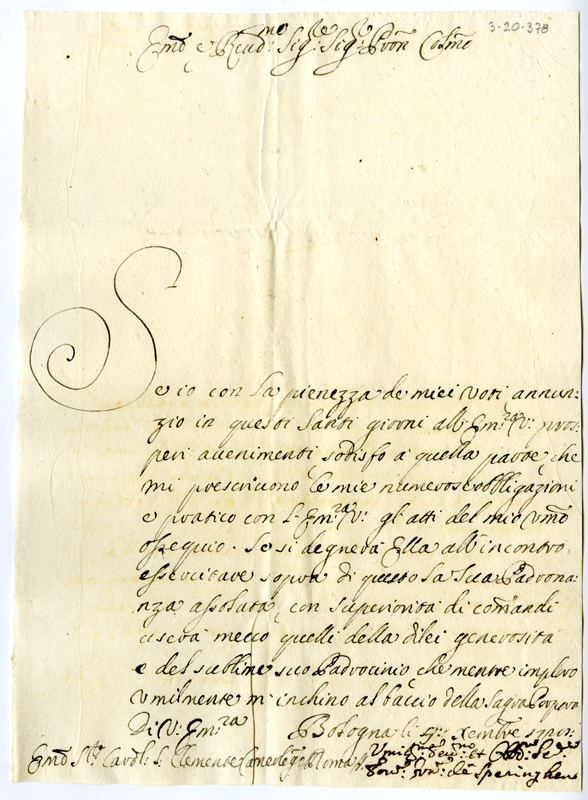 3-20-378
Em̃o e Reud:mo Sig:re Sig:re Pron Colm̃o
Se io con la pienezza de miei voti annun:
zio in questi Santi giorni all' Em:za V: pros:
peri auuenimenti sodisfo a quella parte che
mi prescriuono le mie numerose obbligazioni
e pratico con L'Em:za V: gli atti del mio vm̃o
ossequio. Se si degnerà Ella all'incontro
essercitare sopra di questo la sua Padrona:
nza assoluta con superiorità di com̃andi
userà meco quelli della di lei generosità
e del sublime suo Padrocinio che mentre imploro
vmilmente m'inchino al baccio della Sagra Porpora
Di V: Em:za Bologna li Xembre
Em̃o S:re Cardl: S. Clemente Roma